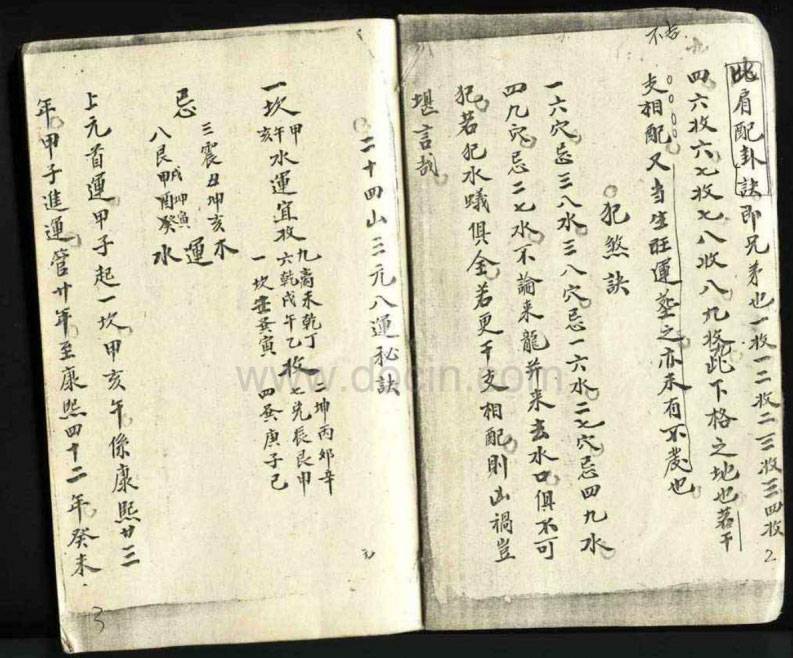 不吉
比肩配卦訣即兄弟也一收一二收二三收三四收
四六收六七收七八收八九收此下格之地也若干
支相配又当生旺運塟之亦未有不發也
犯煞訣
一六穴忌三八水三八穴忌一六水二七穴忌四九水
四九穴忌二七水不論来龍并来去水口俱不可
犯若犯水蟻俱全若更干支相配則凶禍豈
堪言哉
2
二十四山三元八運秘訣
一坎甲午亥水運宜收九离未乾丁
六乾戌午乙
一坎壬巽寅
收二坤丙卯辛
七兌辰艮甲
四巽庚子己
忌三震丑坤亥
八艮甲酉癸
水運水
上元首運甲子起一坎甲亥午係康熙廿三
年甲子進運管廿年至康熙四十二年癸未
3
www.docin.com